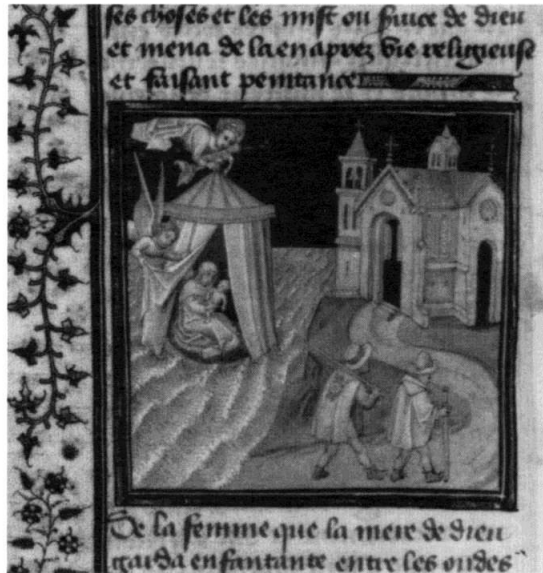 ses choses et les mist ou seruice de dieu
et mena de la en aprez vie religieuse
et faisant penitance
De la femme que la mere de dieu
garda enfantante entre les ondes